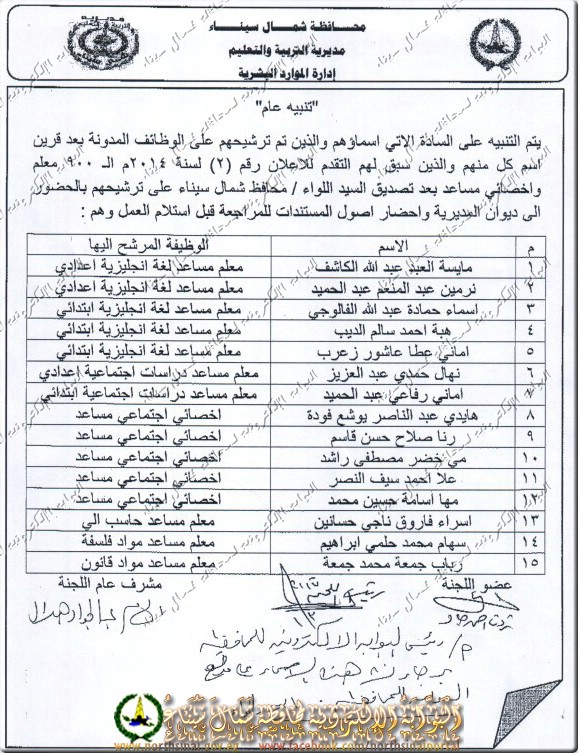 محافظة شمال سيناء
مديرية التربية والتعليم
إدارة الموارد البشرية
"تنبيه عام"
يتم التنبيه على السادة الاتي اسماؤهم والذين تم ترشيحهم على الوظائف المدونة بعد قرين
اسم كل منهم والذين سبق لهم التقدم للاعلان رقم (٢) لسنة ٢٠١٤م الـ ٩٠٠ معلم
واخصائي مساعد بعد تصديق السيد اللواء / محافظ شمال سيناء على ترشيحهم بالحضور
الى ديوان المديرية واحضار اصول المستندات للمراجعة قبل استلام العمل وهم :
م الاسم الوظيفة المرشح اليها
١ مايسة العبد عبد الله الكاشف معلم مساعد لغة انجليزية اعدادي
٢ نرمين عبد المنعم عبد الحميد معلم مساعد لغة انجليزية اعدادي
٣ اسماء حمادة عبد الله الفالوجي معلم مساعد لغة انجليزية ابتدائي
٤ هبة احمد سالم الديب معلم مساعد لغة انجليزية ابتدائي
٥ اماني عطا عاشور زعرب معلم مساعد لغة انجليزية ابتدائي
٦ نهال حمدي عبد العزيز معلم مساعد دراسات اجتماعية اعدادي
٧ اماني رفاعي عبد الحميد معلم مساعد دراسات اجتماعية ابتدائي
٨ هايدي عبد الناصر يوشع فودة اخصائي اجتماعي مساعد
٩ رنا صلاح حسن قاسم اخصائي اجتماعي مساعد
١٠ مي خضر مصطفى راشد اخصائي اجتماعي مساعد
١١ علا احمد سيف النصر اخصائي اجتماعي مساعد
١٢ مها اسامة حسين محمد اخصائي اجتماعي مساعد
١٣ اسراء فاروق ناجي حسانين معلم مساعد حاسب الي
١٤ سهام محمد حلمي ابراهيم معلم مساعد مواد فلسفة
١٥ رباب جمعة محمد جمعة معلم مساعد مواد قانون
عضو اللجنة رئيس اللجنة مشرف عام اللجنة
م/ رئيس البوابة الالكترونية للمحافظة
البوابة الإلكترونية لمحافظة شمال سيناء
www.northsinai.gov.eg www.facebook.com/northsinaigov